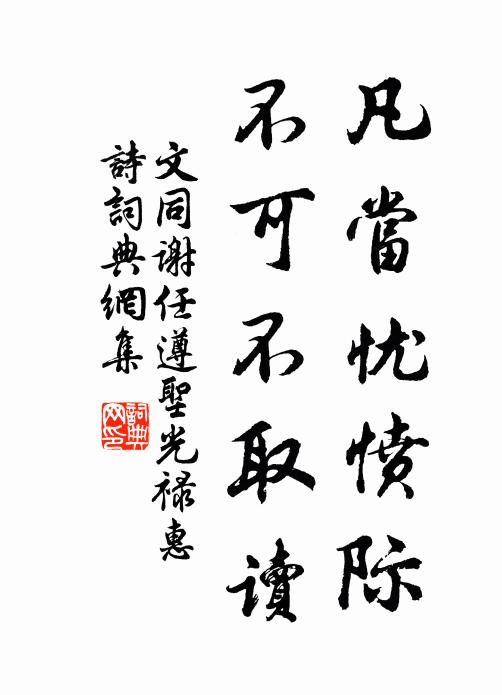 凡當忧愤际
不可不取读
文同谢任遵聖光禄惠
詩詞典網集
詞典网印